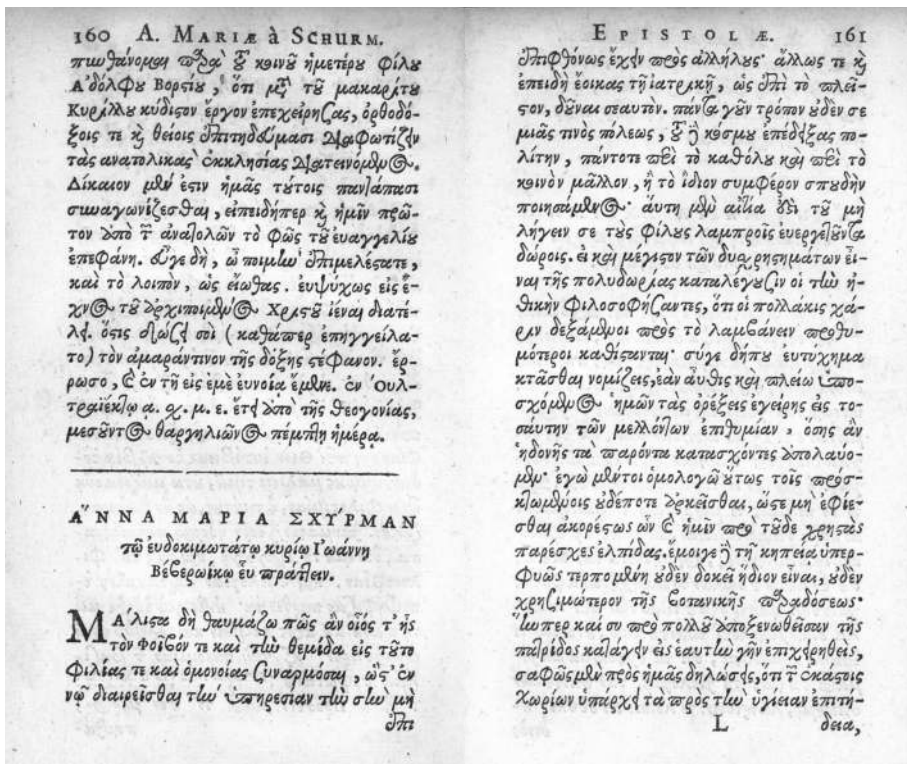 160 A. MARIÆ à SCHURM.
πυνθάνομαι παρὰ τοῦ κοινοῦ ἡμετέρου φίλου
Ἀδόλφου Βορστίου, ὅτι μετὰ τοῦ μακαρίτου
Κυρίλλου κύδιστον ἔργον ἐπεχείρησας, ὀρθοδό-
ξοις τε καὶ θείοις ἐπιτηδεύμασι διαφωτίζειν
τὰς ανατολικας ἐκκλησίας διατεινόμενος.
Δίκαιον μὲν ἐστιν ἡμᾶς τούτοις παντάπασι
συναγωνίζεσθαι, εἰπειδήπερ καὶ ἡμῖν πρῶ-
τον ἀπὸ τῶν ἀνατολῶν τὸ φῶς τοῦ ευαγγελίου
ἐπεφάνη. εὖγε δὴ, ὦ ποιμὴν ἐπιμελέστατε,
καὶ τὸ λοιπὸν, ὡς εἴωθας. ευψύχως εἰς ἴ-
χνος τοῦ ἀρχιποιμένος Χριστοῦ ἰέναι διατέ-
λει. ὅστις σώζει σοὶ (καθάπερ ἐπηγγείλα-
το) τὸν ἀμαράντινον τῆς δόξης στέφανον. ἔρ-
ρωσο, καὶ ἐν τῇ εἰς ἐμὲ ἐυνοίᾳ ἔμμενε. ἐν Ὀυλ-
τραϊέκτῳ α. χ. μ. ε. ἔτει ἀπὸ τῆς θεογονίας,
μεσοῦντος θαργηλιῶνος πέμπτῃ ἡμέρᾳ.
ἌΝΝΑ ΜΑΡΙΑ ΣΧΥΡΜΑΝ
τῷ ευδοκιμωτάτῳ κυρίῳ Ἰωάννῃ
Βέβερωίκω εὖ πράττειν.
Μάλιστα δὴ θαυμάζω πῶς ἀν οἷός τ' ῇς
τὸν Φοῖβόν τε καὶ τὴν θεμίδα εἰς τοῦτο
φιλίας τε καὶ ὁμονοίας συναρμόσαι, ὥς' ἐν
νῷ διαιρεῖσθαι τὴν ὑπηρεσίαν τὴν σὴν μὴ
ἐπι
EPISTOLÆ. 161
ἐπιφθόνως ἔχειν πρὸς αλλήλους· ἄλλως τε καὶ
ἐπειδὴ ἔοικας τῇ ἰατρικῇ, ὡς ἐπὶ τὸ πλεῖ-
στον, δοῦναι σεαυτὸν. πάντα γοῦν τρόπον οὐδέν σε
μιᾶς τινὸς πόλεως, τοῦ δὲ κόσμου ἐπέδειξας πο-
λίτην, πάντοτε περὶ τὸ καθόλου καὶ περὶ τὸ
κοινὸν μᾶλλον, ἢ τὸ ἴδιον συμφέρον σπουδὴν
ποιησάμενος· ἅυτη μὲν αἰτία ἐστὶ τοῦ μὴ
λήγειν σε τοὺς φίλους λαμπροῖς ἐυεργετοῦντα
δώροις. ἐι καὶ μέγιστον τῶν δυσχρηστημάτων εἶ-
ναι τῆς πολυδωρίας καταλέγουσιν οἱ τὴν η-
θικὴν φιλοσοφήσαντες, ὅτι οἱ πολλάκις χά-
ριν δεξάμενοι πρὸς τὸ λαμβάνειν προθυ-
μότεροι καθίστανται· σύγε δήπου ἐυτύχημα
κτᾶσθαι νομίζεις, ἐὰν ἀυθις καὶ πλείω ὑπο-
σχόμενος ἡμῶν τὰς ὀρέξεις ἐγείρῃς ἐις το-
σαύτην τῶν μελλόντων ἐπιθυμίαν, ὅσης ἀν
ἡδονῆς τὰ παρόντα κατασχόντες ἀπολαύο-
μεν· ἐγὼ μέντοι ὁμολογῶ οὕτως τοῖς προσ-
κτωμένοις οὐδέποτε ἀρκεῖσθαι, ὥστε μὴ ἐφίε-
σθαι ἀκορέστως ὧν καὶ ἡμῖν πρὸ τοῦδε χρηστὰς
παρέσχες ἐλπίδας. ἔμοιγε δὲ τῇ κηπείᾳ ὑπερ-
φυῶς τερπομένῃ οὐδέν δοκεῖ ἥδιον εἶναι, οὐδέν
χρησιμώτερον τῆς βοτανικῆς παραδόσεως·
ἥνπερ καὶ συ πρὸ πολλοῦ ἀποξενωθεῖσαν τῆς
πατρίδος κατάγειν ἐις ἑαυτὴν γῆν ἐπιχειρηθεὶς,
σαφῶς μὲν πρὸς ἡμᾶς δηλώσεις, ὅτι τῶν ἑκάστοις
χωρίων ὑπάρχει τὰ πρὸς τὴν ὑγίειαν ἐπιτή-
L δεια,